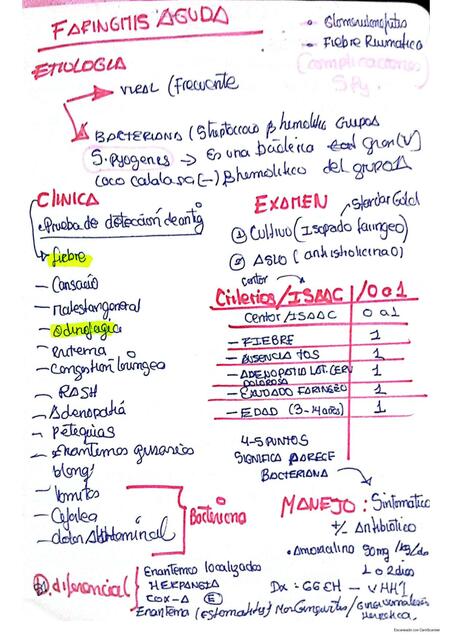 FARINGITIS AGUDA
• Glomerulonefritis
• Fiebre Reumatica
(complicaciones
S.Py.
ETIOLOGIA
→ VIRAL (Frecuente
BACTERIANA (Streptococo β hemolitic Grupos
S. Pyogenes → Es una bacteria gram (V)
coco catalasa (-) βhemolitico del grupo A
CLINICA
• Prueba de detección de antig
fiebre
— Cansacio
— malestar general
— Odinofagia
— eritema
— Congestión laringea
— RASH
— Adenopatía
— Petequias
— Enantemos gusanicos
blang
— Vomitos
— Cefalea
— dolor Abdominal
Bacteriana
EXAMEN
Standar Gold
① Cultivo (Isopado faringeo)
② ASLO (antistolicina O)
centor
Criterios / ISAAC / 0 a 1
Centor / ISAAC 0 a 1
— FIEBRE 1
— AUSENCIA TOS 1
— ADENOPATIA LAT. CERV DOLOROSA 1
— EXUDADO FARINGEO 1
— EDAD (3-14 años) 1
4-5 PUNTOS
SIGNIFICA PARECE
BACTERIANA
MANEJO: Sintomatico
+/- Antibiótico
• Amoxicilina 90mg /kg/do
10 días
Dx: GGEH — VHH1
D. diferencial
Enantemo localizados
HERPANGIA
COX-A (E)
Enantema (Estomatitis)
Escaneado con CamScanner